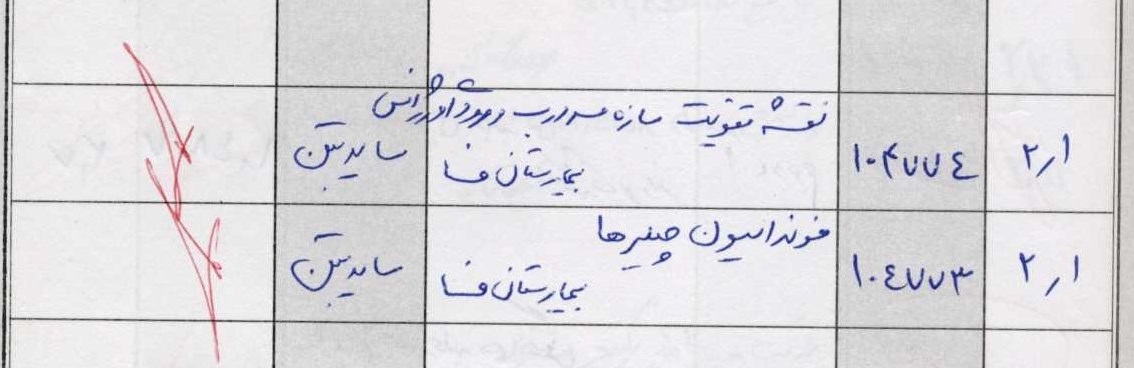 ۲٫۱
۱۰۴۷۷۴
نقشه تقویت سازه سردرب ورودی اورژانس
بیمارستان فسا
سایدبتن
۲٫۱
۱۰۴۷۷۳
فونداسیون چیلرها
بیمارستان فسا
سایدبتن